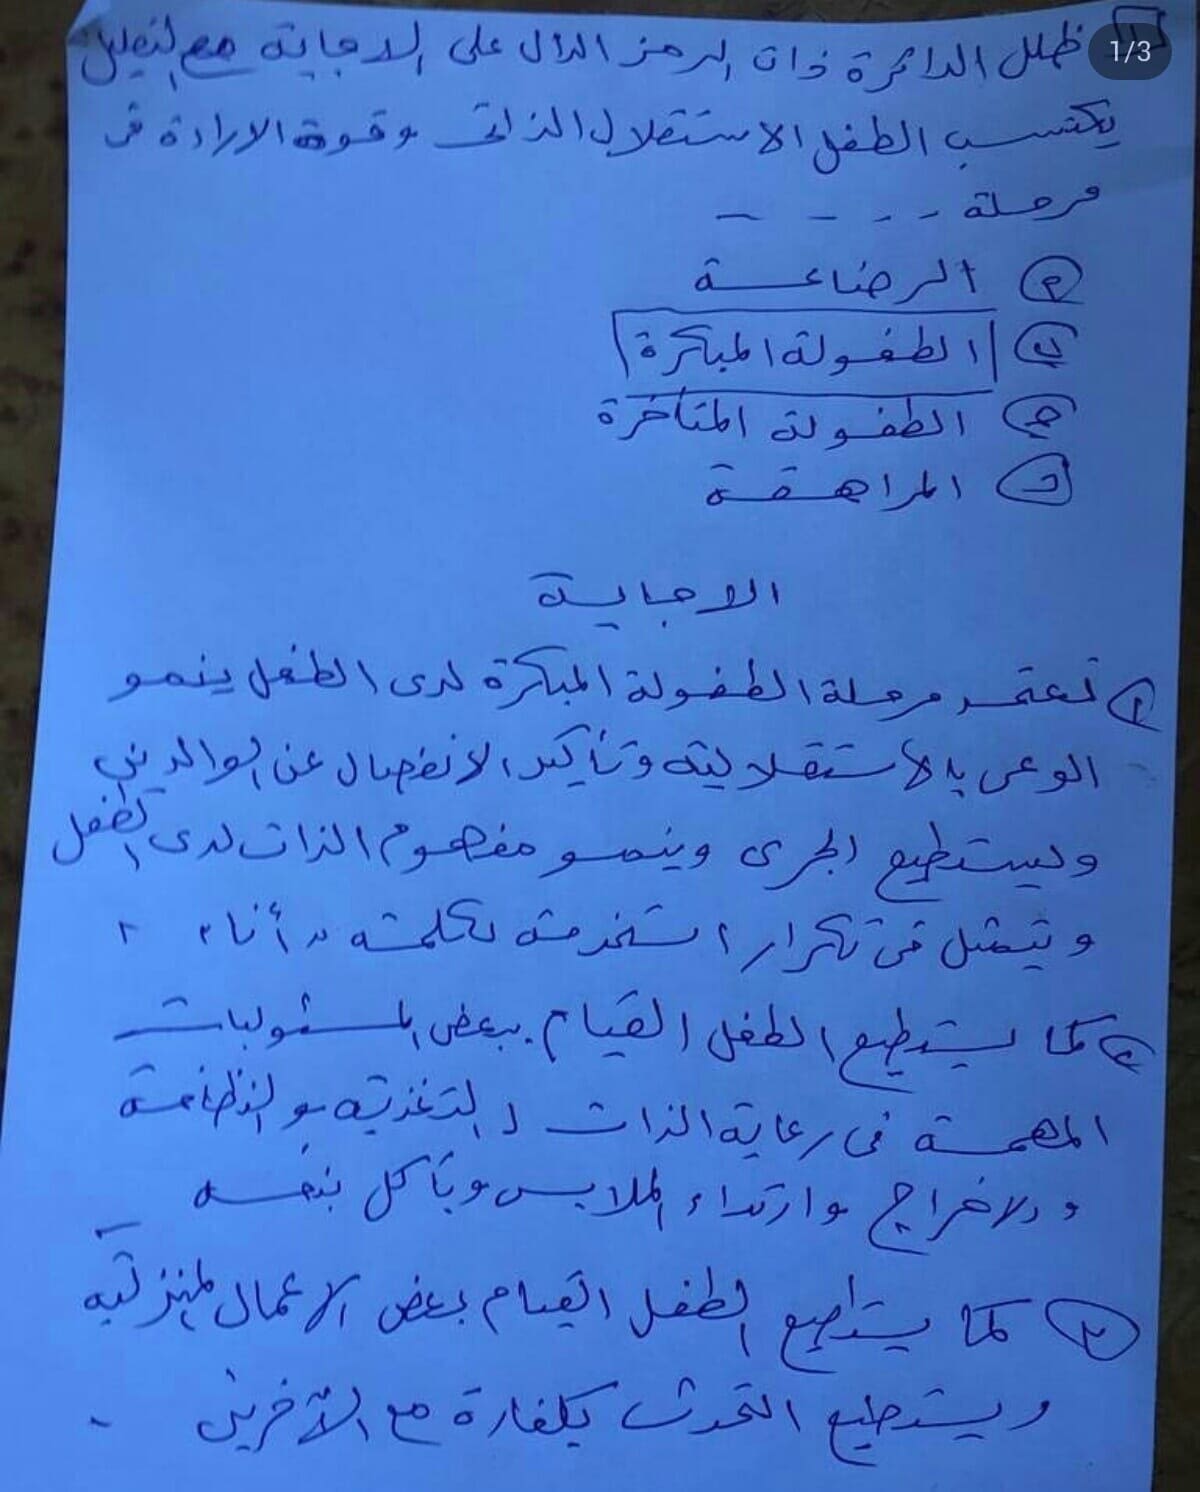 1/3
ظلل الدائرة ذات الرمز الدال على الاجابة مع التعليل
يكتسب الطفل الاستقلال الذاتى وقوة الارادة فى
مرحلة - - - -
م الرضاعة
ب الطفولة المبكرة
ج الطفولة المتأخرة
د المراهقة
الاجابة
١ تعتمد مرحلة الطفولة المبكرة لدى الطفل ينمو
الوعى بالاستقلالية وتأكيد الانفصال عن الوالدين
ويستطيع الجرى وينمو مفهوم الذات لدى الطفل
ويتمثل فى تكرار استخدمة لكلمته " أنا "
٢ كما يستطيع الطفل القيام ببعض المسئوليات
المهمة فى رعاية الذات والتغذية والنظافة
والاخراج وارتداء الملابس ويأكل بنفسه
٣ كما يستطيع الطفل القيام بعض الاعمال المنزلية
ويستطيع التحدث بكفارة مع الآخرين